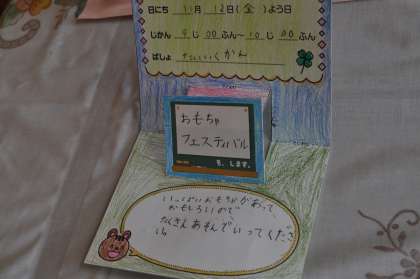 日にち 11月 12日(金)よう日
じかん 9じ00ふん～10じ00ふん
ばしょ たいいくかん
おもちゃ
フェスティバル
を、します。
いっぱいおもちゃがあって、
おもしろいので
たくさんあそんでいってくださ
い